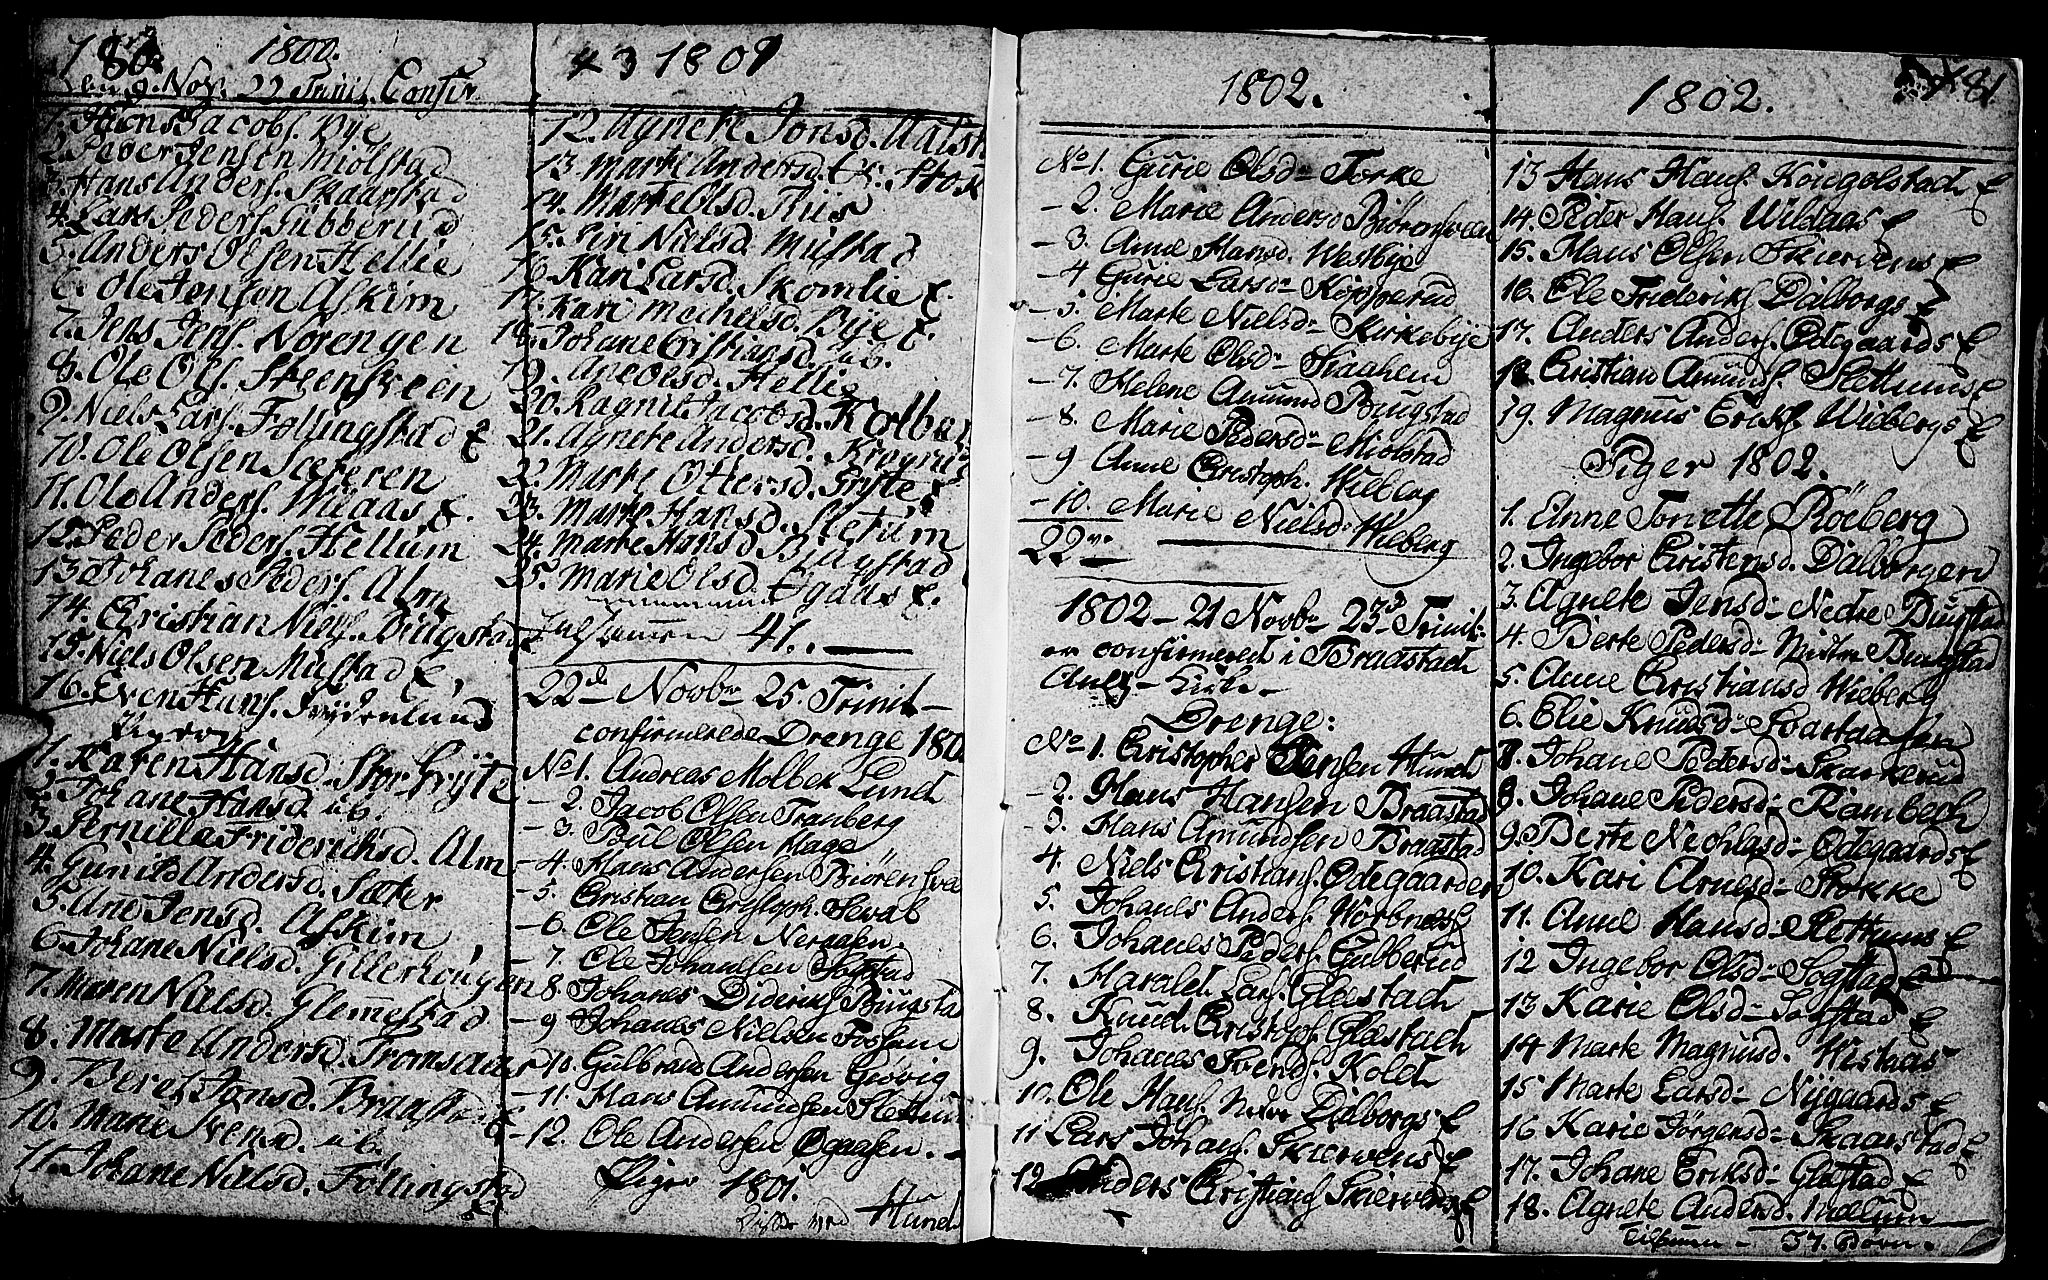 180
1800.
den 9. Nov. 22 Trinit. Confir
1. Hans Jacobs. Bye
2. Peder Jensen Miölstad
3. Hans Anders. Skaarstad
4. Lars Peders. Gubberud
5. Anders Olsen Hellie
6. Ole Jensen Askim
7. Jens Jens. Norengen
8. Ole Ols. Steensveen
9. Niels Lars. Follingstad E
10. Ole Olsen Sceteren
11. Ole Anders. Milaas E.
12. Peder Peders. Hellum
13. Johanes Peders. Alm
14. Cristian Niels. Bingstad
15. Niels Olsen Mustad E.
16. Even Hans. Frydenlund
Pigerne
1. Karen Hansd. Stor Gryte
2. Johane Hansd. ib.
3. Pernilla Friderichsd. Alm
4. Gunild Andersd. Sæter
5. Ane Jensd. Askim
6. Johane Nielsd. Gillerhougen
7. Maren Nielsd. Glemestad
8. Marte Andersd. Tromsaas
9. Beret Jonsd. Braastad
10. Marie Svensd. ib.
11. Johane Nielsd. Follingstad
1801
12. Agnete Jonsd. Aalst
13. Marte Andersd. Stok
14. Marte Olsd. Riis
15. Siri Nielsd. Mustad
16. Kari Larsd. Skomlie E.
17. Kari Michelsd. Bye E.
18. Johane Cristiansd. ib.
19. Ane Olsd. Hellie
20. Ragnil Jacobsd. Kolber
21. Agnete Andersd.
22. Marte Ottersd. Gryte E
23. Marte Hansd. Sletum
24. Marte Hansd. Bugstad
25. Marie Olsd. Ogaas E.
Tilsammen 41.
22d Novbr 25. Trinit
confirmerede Drenge 180
No 1. Andreas Molbek Lund
- 2. Jacob Olsen Tranberg
- 3. Poul Olsen Hage
- 4. Hans Andersen Biörensve
- 5. Cristian Cristoph. Sewal
- 6. Ole Jensen Nergasen.
- 7. Ole Johansen Sogstad
- 8. Johanes Didericks Buusta
- 9 Johanes Nielsen Fossum
- 10. Gulbrand Andersen Giövig
- 11. Hans Amundsen Slettum
- 12. Ole Andersen Ogaasen.
Piger 1801.
Hunch
1802.
No 1. Gurie Olsd. Torke
- 2. Marie Andersd Biörensveen
- 3. Anne Hansd. Westbye
- 4 Gurie Larsd. Kopperud
- 5. Marte Nielsd. Kirkebye
- 6. Marte Olsd. Kaahem
- 7. Helene Amund Bingstad
- 8. Marie Pedersd. Miolstad
- 9 Anne Cristoph. Wiberg
- 10. Marie Nielsd. Wieberg
22
1802 - 21 Novbr 23d Trinit:
er confirmered i Braastad
Anex - Kirke -
Drenge:
No 1. Cristopher Jensen Hunch
- 2. Hans Hansen Braastad
- 3. Hans Amundsen Braastad
4. Niels Cristians. Ödegaarden
5. Johanes Anders. Worbnes E
6. Johanes Peders. Gulberud
7. Harald Lars. Gleestad
8. Knud Cristoph. Gleestad
9. Johanes Svends. Kold
10. Ole Hans. Nedre Dalborgs E
11 Lars Johans. Skierwens E
12 Anders Cristians Skierwens E
181
1802.
13 Hans Hans. Köngelstad E
14. Peder Hans. Wildaas E
15. Hans Olsen Skierwens E
16. Ole Frideriks Dalborgs E
17. Anders Anders. Ödegaards E
18 Cristian Amunds. Slettums E
19. Magnus Eriks. Wibergs E
Piger 1802.
1. Anne Tonette Röeberg
2. Ingebor Cristensd. Dalborgen
3. Agnete Jensd. Nedre Buustad
4. Berte Pedersd. Bingstad
5. Anne Cristiansd Wieberg
6. Elie Knudsd.
7. Johane Pedersd. Skarkerud
8. Johane Pedersd. Rambech
9. Berte Nechlasd. Ödegaards E
10. Kari Arnesd. Stokke
11. Anne Hansd. Slettums E
12 Ingebor Olsd. Sogstad E
13 Karie Olsd. Sogstad E
14 Marte Magnusd. Westaas
15 Marte Larsd. Nÿgaards E
16 Karie Jörgensd. Skaarstad E
17. Johane Eriksd. Glæstad E
18. Agnete Andersd. Mælum
Tilsammen - 37. Börn.